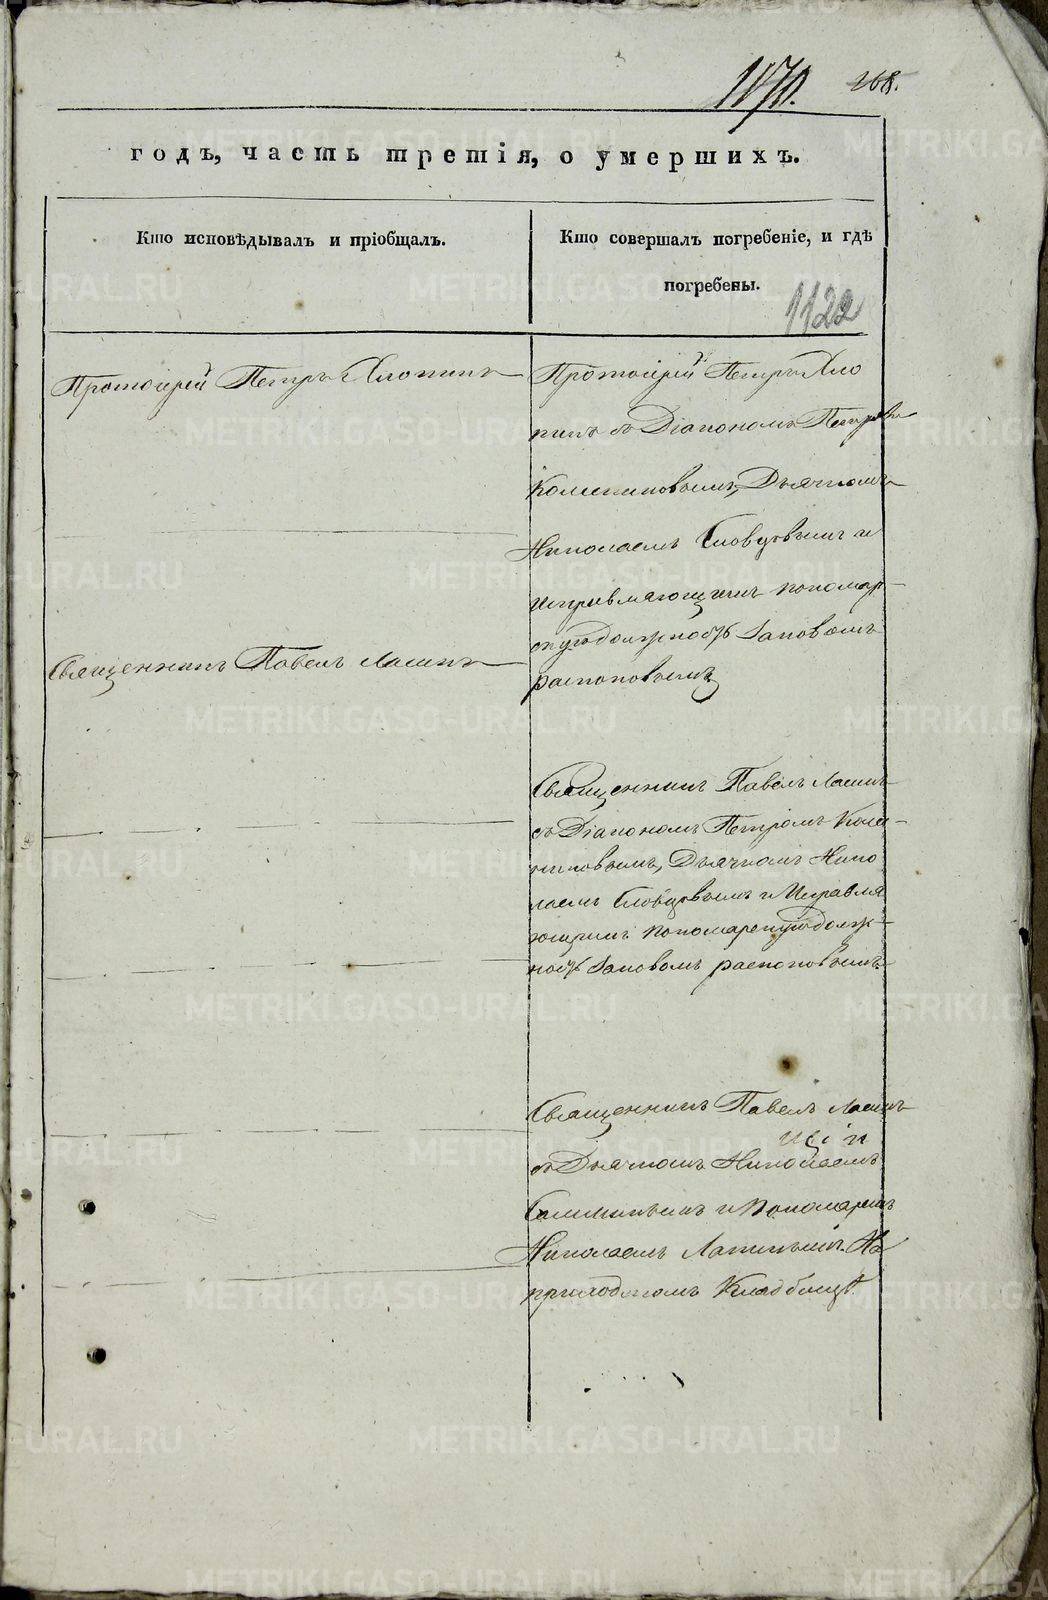 1870. 268.
годъ, часть третія, о умершихъ.
Кто исповѣдывалъ и пріобщалъ.
Кто совершалъ погребеніе, и гдѣ
погребены.
1122
Протоіерей Петръ Хлопинъ
Протоіерей Петръ Хло
пинъ съ Діакономъ Петромъ
Дьячкомъ
Николаемъ Словцовымъ и
Исправляющимъ пономар-
скую должность
распоповымъ
Священникъ Павелъ
Священникъ Павелъ
съ Діакономъ Петромъ
Дьячкомъ Нико
лаемъ Словцовымъ и Исправля
ющимъ пономарскую долж-
ность распоповымъ
Священникъ Павелъ
съ Дьячкомъ Николаемъ
и Пономаремъ
Николаемъ На
приходскомъ Кладбищѣ.
METRIKI.GASO-URAL.RU